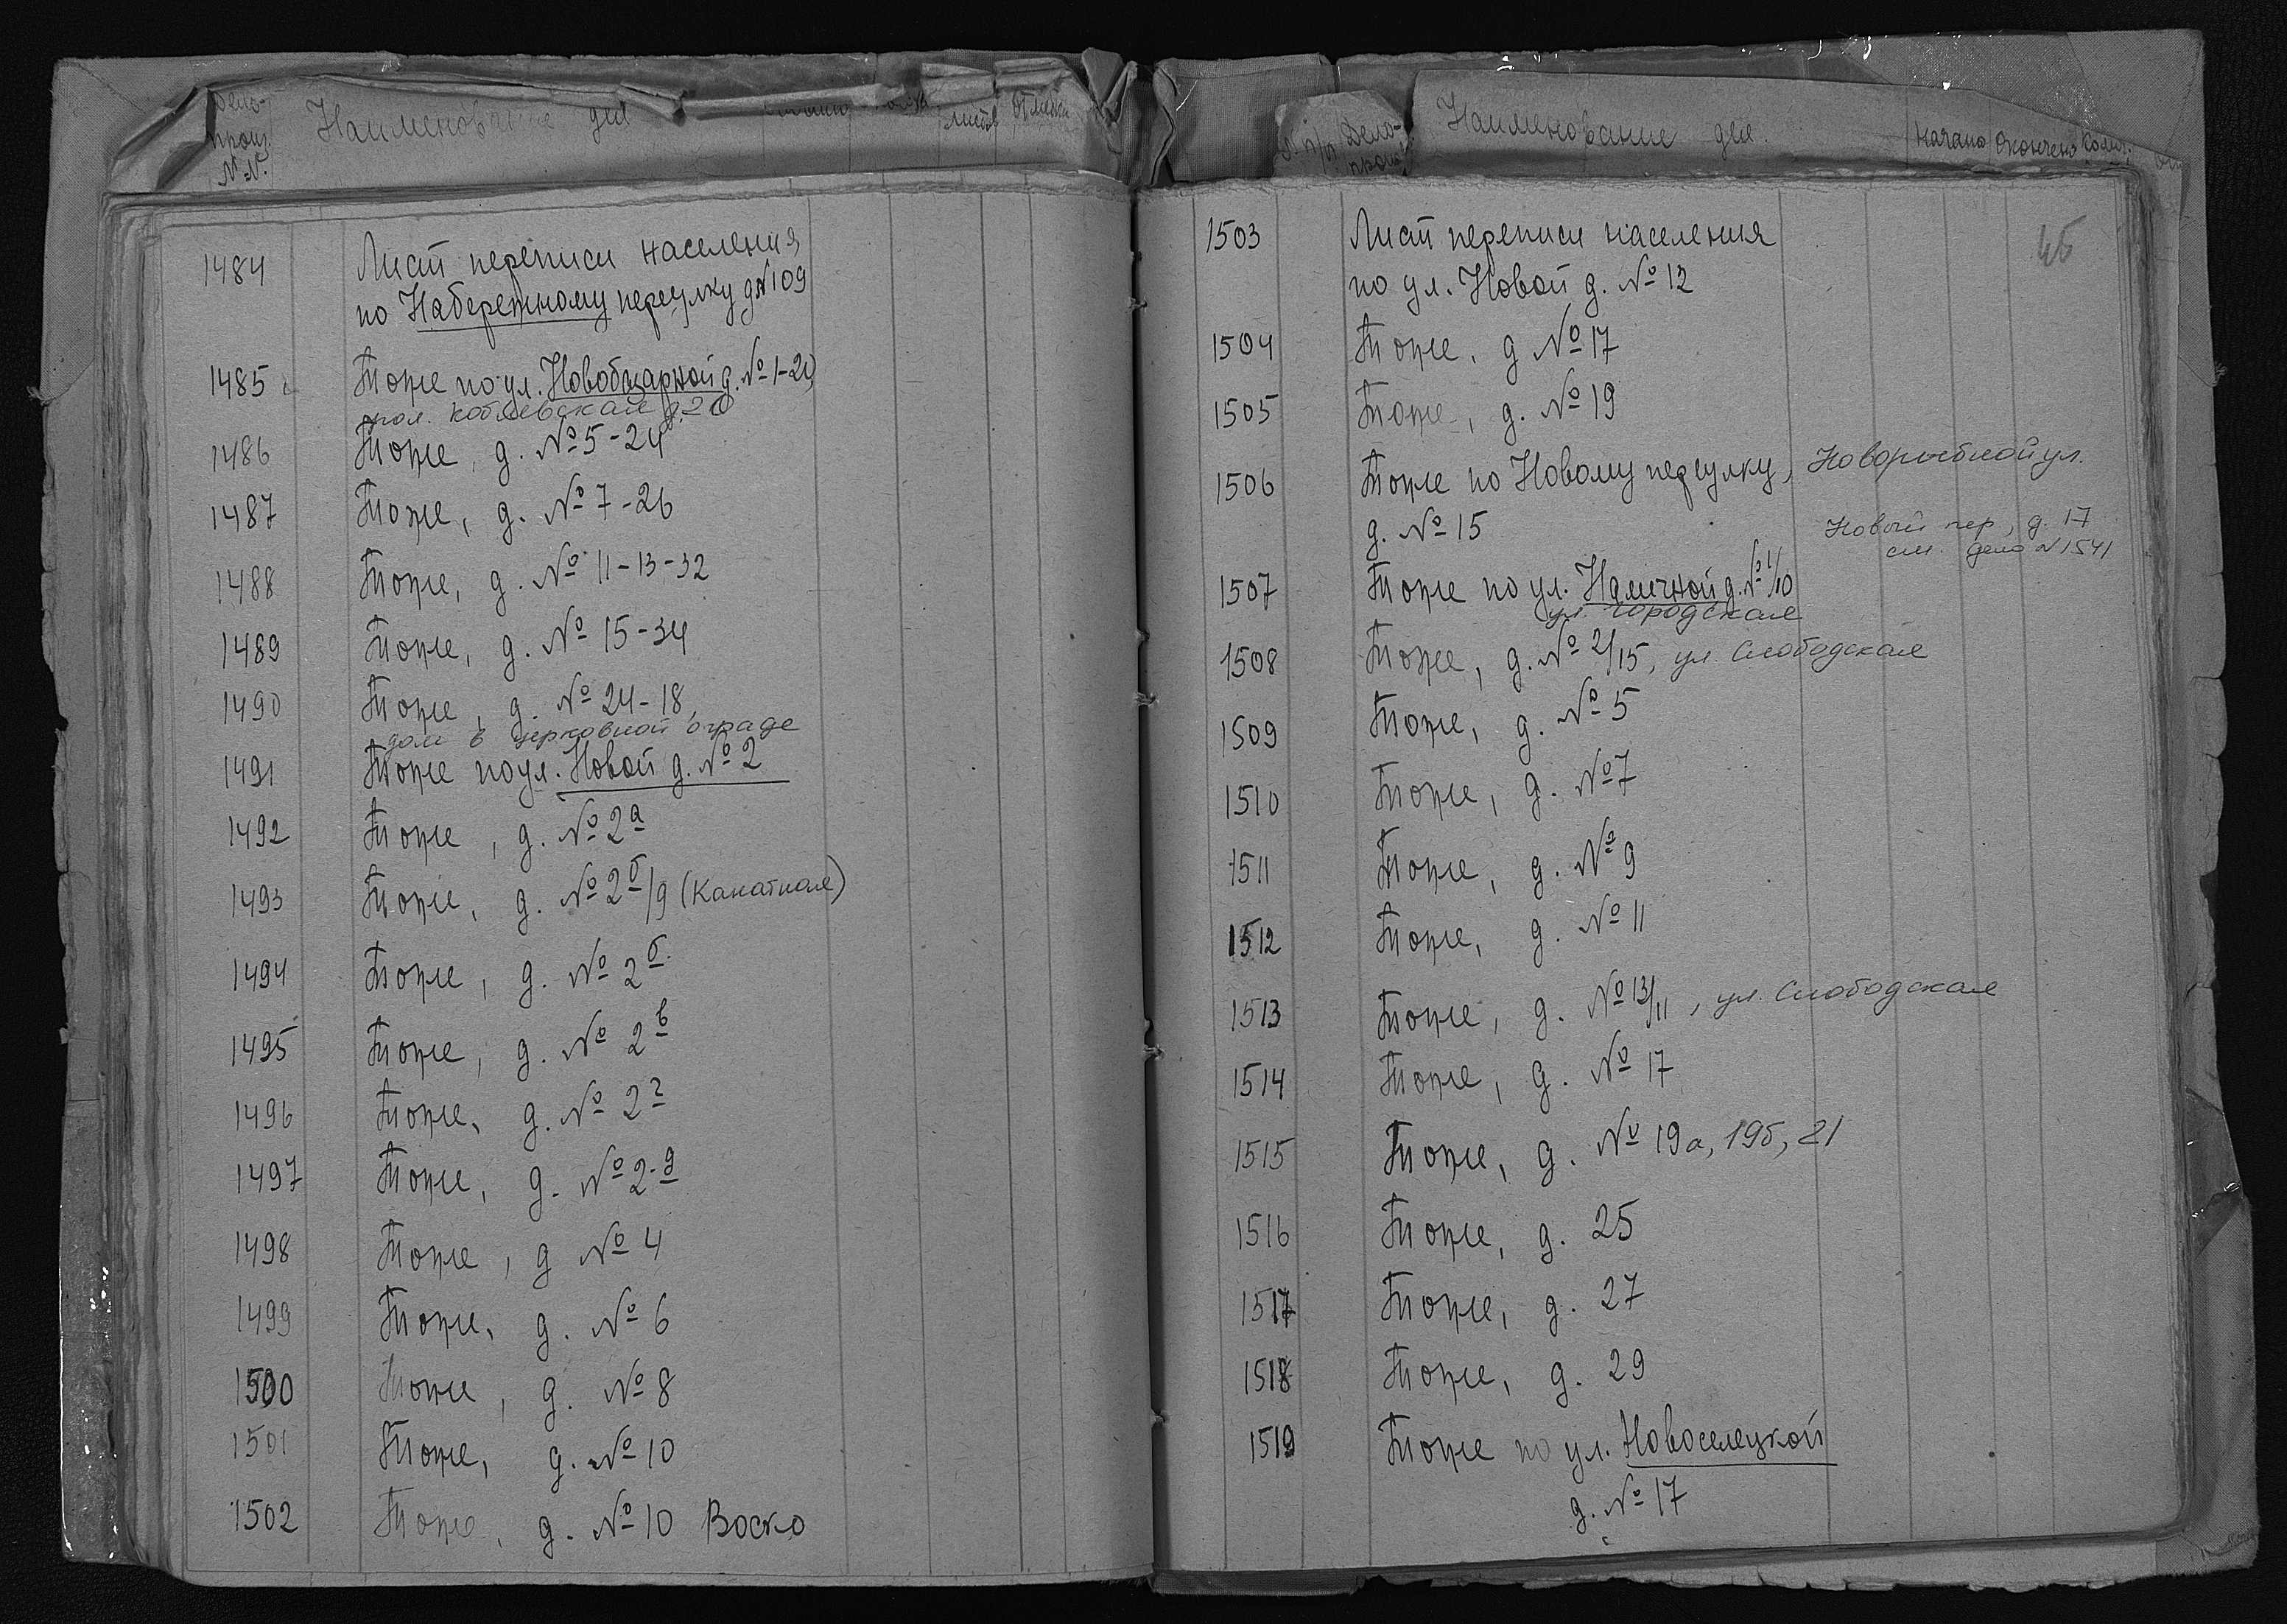 Дело-
произ.
№.№.
Наименование дел
листов
1484 Лист переписи населения
по Набережному переулку д№109
1485 Тоже по ул. Новобазарной д. №1-20
д.20
1486 Тоже, д. №5-24
1487 Тоже, д. №7-26
1488 Тоже, д. № 11-13-32
1489 Тоже, д. № 15-34
1490 Тоже, д. № 24-18,
дом в церковной ограде
1491 Тоже по ул. Новой д. №2
1492 Тоже, д. №2а
1493 Тоже, д. №2б/9 (Канатная)
1494 Тоже, д. № 2б.
1495 Тоже, д. № 2в
1496 Тоже, д. № 2г
1497 Тоже, д. №2-д
1498 Тоже, д № 4
1499 Тоже, д. № 6
1500 Тоже, д. № 8
1501 Тоже, д. №10
1502 Тоже, д. №10 Воско
№ п/п
Дело-
произ.
Наименование дел.
Начано
Окончено
Колич.
1503 Лист переписи населения
по ул. Новой д. №12
1504 Тоже, д №17
1505 Тоже, д. №19
1506 Тоже по Новому переулку, Новорыбной ул.
д. №15
Новый пер, д. 17
см. дело №1541
1507 Тоже по ул. Наличной д. №1/10
ул. Городская
1508 Тоже, д. №2/15, ул. Слободская
1509 Тоже, д. №5
1510 Тоже, д. №7
1511 Тоже, д. №9
1512 Тоже, д. №11
1513 Тоже, д. №13/11, ул. Слободская
1514 Тоже, д. №17
1515 Тоже, д. № 19а, 19б, 21
1516 Тоже, д. 25
1517 Тоже, д. 27
1518 Тоже, д. 29
1519 Тоже по ул. Новоселецкой
д. №17